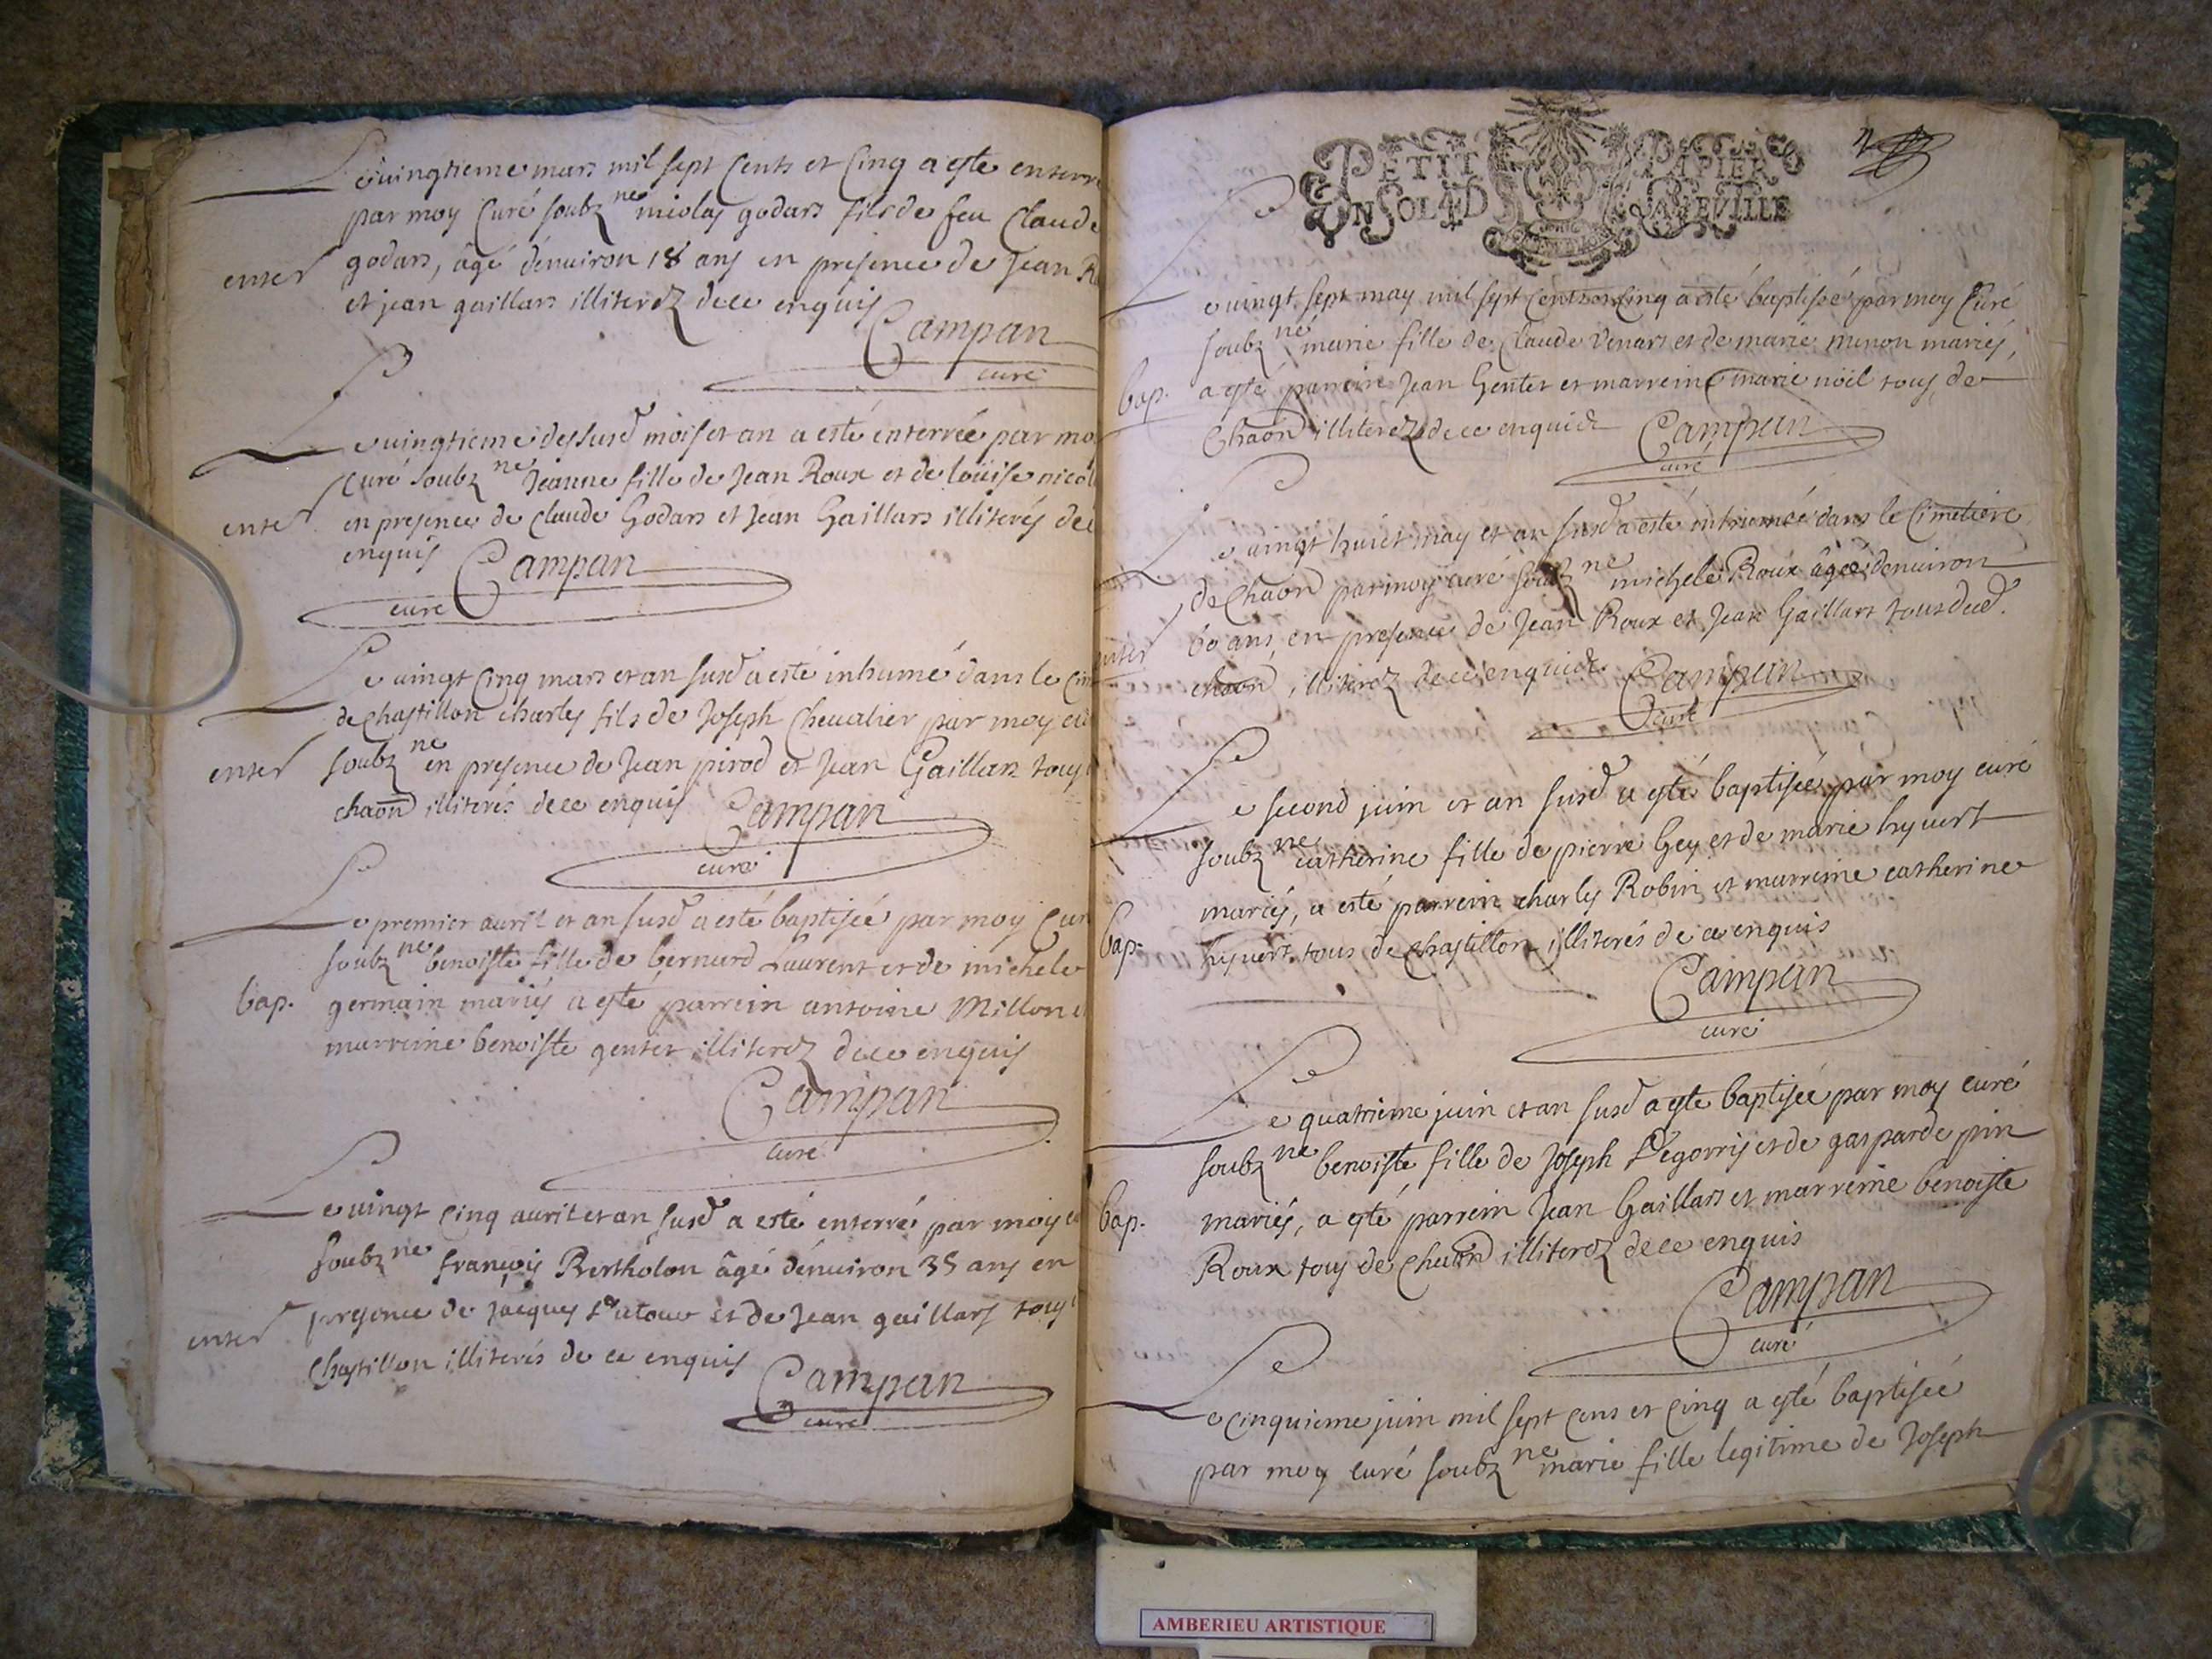 Le vingtieme mars mil sept cents et cinq a esté enterr
par moy curé soubz.ne nicolas godars fils de feu Claude
enter godars, âgé d'environ 18 ans en presence de Jean R
et jean gaillars illiterez de ce enquis
Campan
curé
Le vingtieme des susd mois et an a esté enterrée par mo
curé soubz.ne Jeanne fille de Jean Roux et de loüise nicol
enter en presence de Claude Godars et Jean Gaillars illiterés de
enquis Campan
curé
Le vingt cinq mars et an susd a esté inhumé dans le cim
de chastillon charles fils de Joseph Chevalier par moy cu
enter soubz.ne en presence de Jean pirod et Jean Gaillars tous
chaon illiterés de ce enquis Campan
curé
Le premier avril et an susd a esté baptisée par moy cur
soubz.ne benoiste fille de bernard Laurent et de michele
bap. germain mariés a esté parrein antoine Millon
marreine benoiste genter illiterez de ce enquis
Campan
curé
Le vingt cinq avril et an susd a esté enterré par moy cu
soubz.ne françois Bertholon âgé d'environ 35 ans en
enter presence de Jacques et de Jean gaillars tous
Chastillon illiterés de ce enquis Campan
curé
PETIT PAPIER
UN SOL 4D LA FEUILLE
Le vingt sept may mil sept cents et cinq a esté baptisée par moy Curé
soubz.né marie fille de Claude Venars et de marie minon mariés,
bap. a esté parrein Jean Genter et marreine marie noël tous de
Chaon illiterez de ce enquis Campan
curé
Le vingt huict may et an susd a esté inhumée dans le Cimetiere
de Chaon par moy curé soubz.ne michele Roux âgée d'environ
enter 60 ans, en presence de Jean Roux et Jean Gaillars tous dud.
chaon, illiterez de ce enquis Campan
curé
Le second juin et an susd a esté baptisée par moy curé
soubz.ne catherine fille de pierre Gey et de marie hyvert
mariés, a esté parrein charles Robin et marreine catherine
bap. hyvert tous de Chastillon illiterés de ce enquis
Campan
curé
Le quatrieme juin et an susd a esté baptisée par moy curé
soubz.ne benoiste fille de Joseph Degorris et de gasparde pin
bap. mariés, a esté parrein Jean Gaillars et marreine benoiste
Roux tous de Chaon illiterez de ce enquis
Campan
curé
Le cinquieme juin mil sept cens et cinq a esté baptisée
par moy curé soubz.ne marie fille legitime de Joseph
AMBERIEU ARTISTIQUE